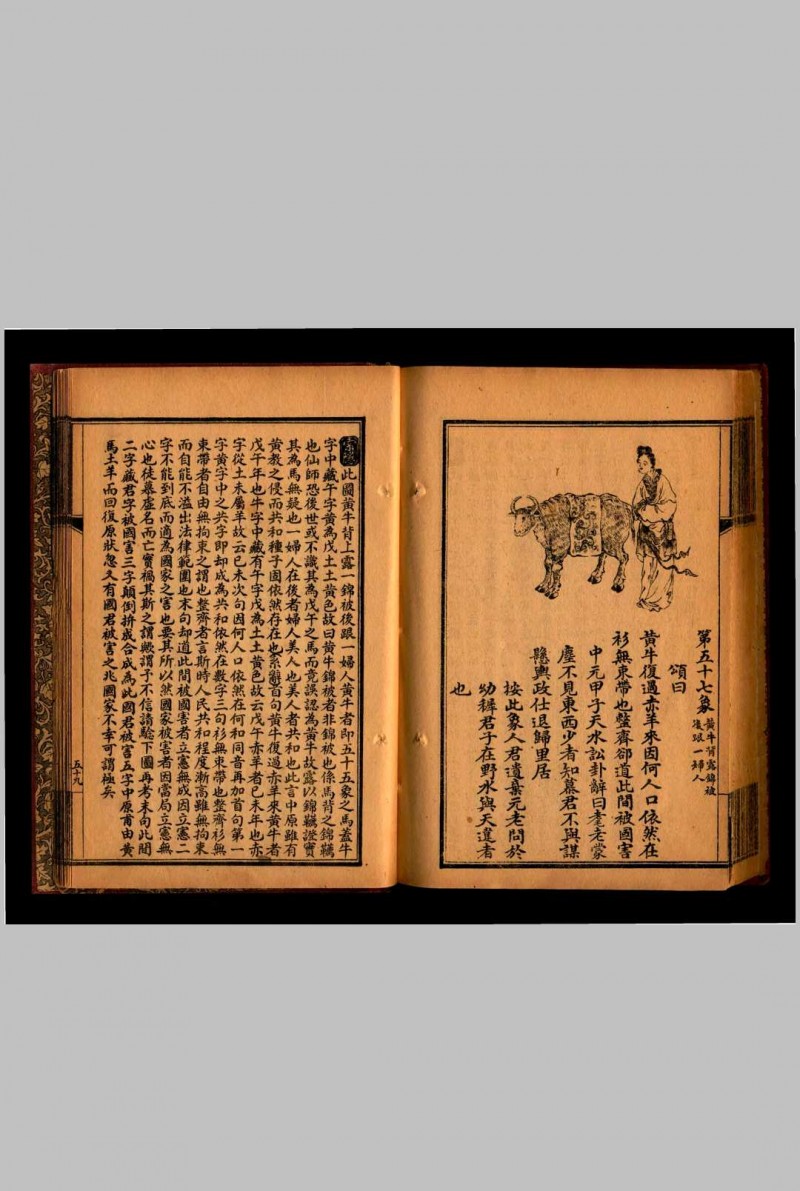 第五十七象
黃牛背露錦被
後跟一婦人
頌曰
黃牛復過赤羊來因何人口依然在
衫無束帶也整齊卻道此間被國害
中元甲子天水訟卦辭曰耄老蒙
塵不見東西少者知慕君不與謀
懸輿政仕退歸里居
按此象人君遺棄元老問於
幼穉君子在野水與天違者
也
此圖黃牛背上露一錦被後跟一婦人黃牛者即五十五象之馬蓋牛
字中藏午字黃為戊土土黃色故曰黃牛錦被者非錦被也係馬背之錦韀
也仙師恐後世或不識其為戊午之馬而竟誤認為黃牛故露以錦韀證實
其為馬無疑也一婦人在後者婦人美人也美人者共和也此言中原雖有
黃教之侵而共和種子固依然存在也系辭首句黃牛復過赤羊來黃牛者
戊午年也牛字中藏有午字戊為土土黃色故云戊午赤羊者己未年也赤
字從土未屬羊故云己未次句因何人口依然在何和同音再加首句第一
字黃字中之共字即却成為共和依然在數字三句衫無束帶也整齊衫無
束帶者自由無拘束之謂也整齊者言斯時人民共和程度漸高雖無拘束
而自能不溢出法律範圍也末句却道此間被國害者立憲無成因立憲二
字不能到底而適為國家之害也要其所以然國家被害者因當局立憲無
心也徒慕虛名而亡實禍其斯之謂歟謂予不信請驗下圖再考末句此間
二字藏君字被國害三字顛倒拼或合成為此國君被害五字中原甫由黃
馬土羊而回復原狀忽又有國君被害之兆國家不幸可謂極矣
五十九